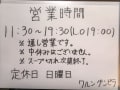 営業時間
11:30~19:30(L.O19:00)
※通し営業です。
※中休みはございません。
※スープ切れ次第終了。
定休日 日曜日